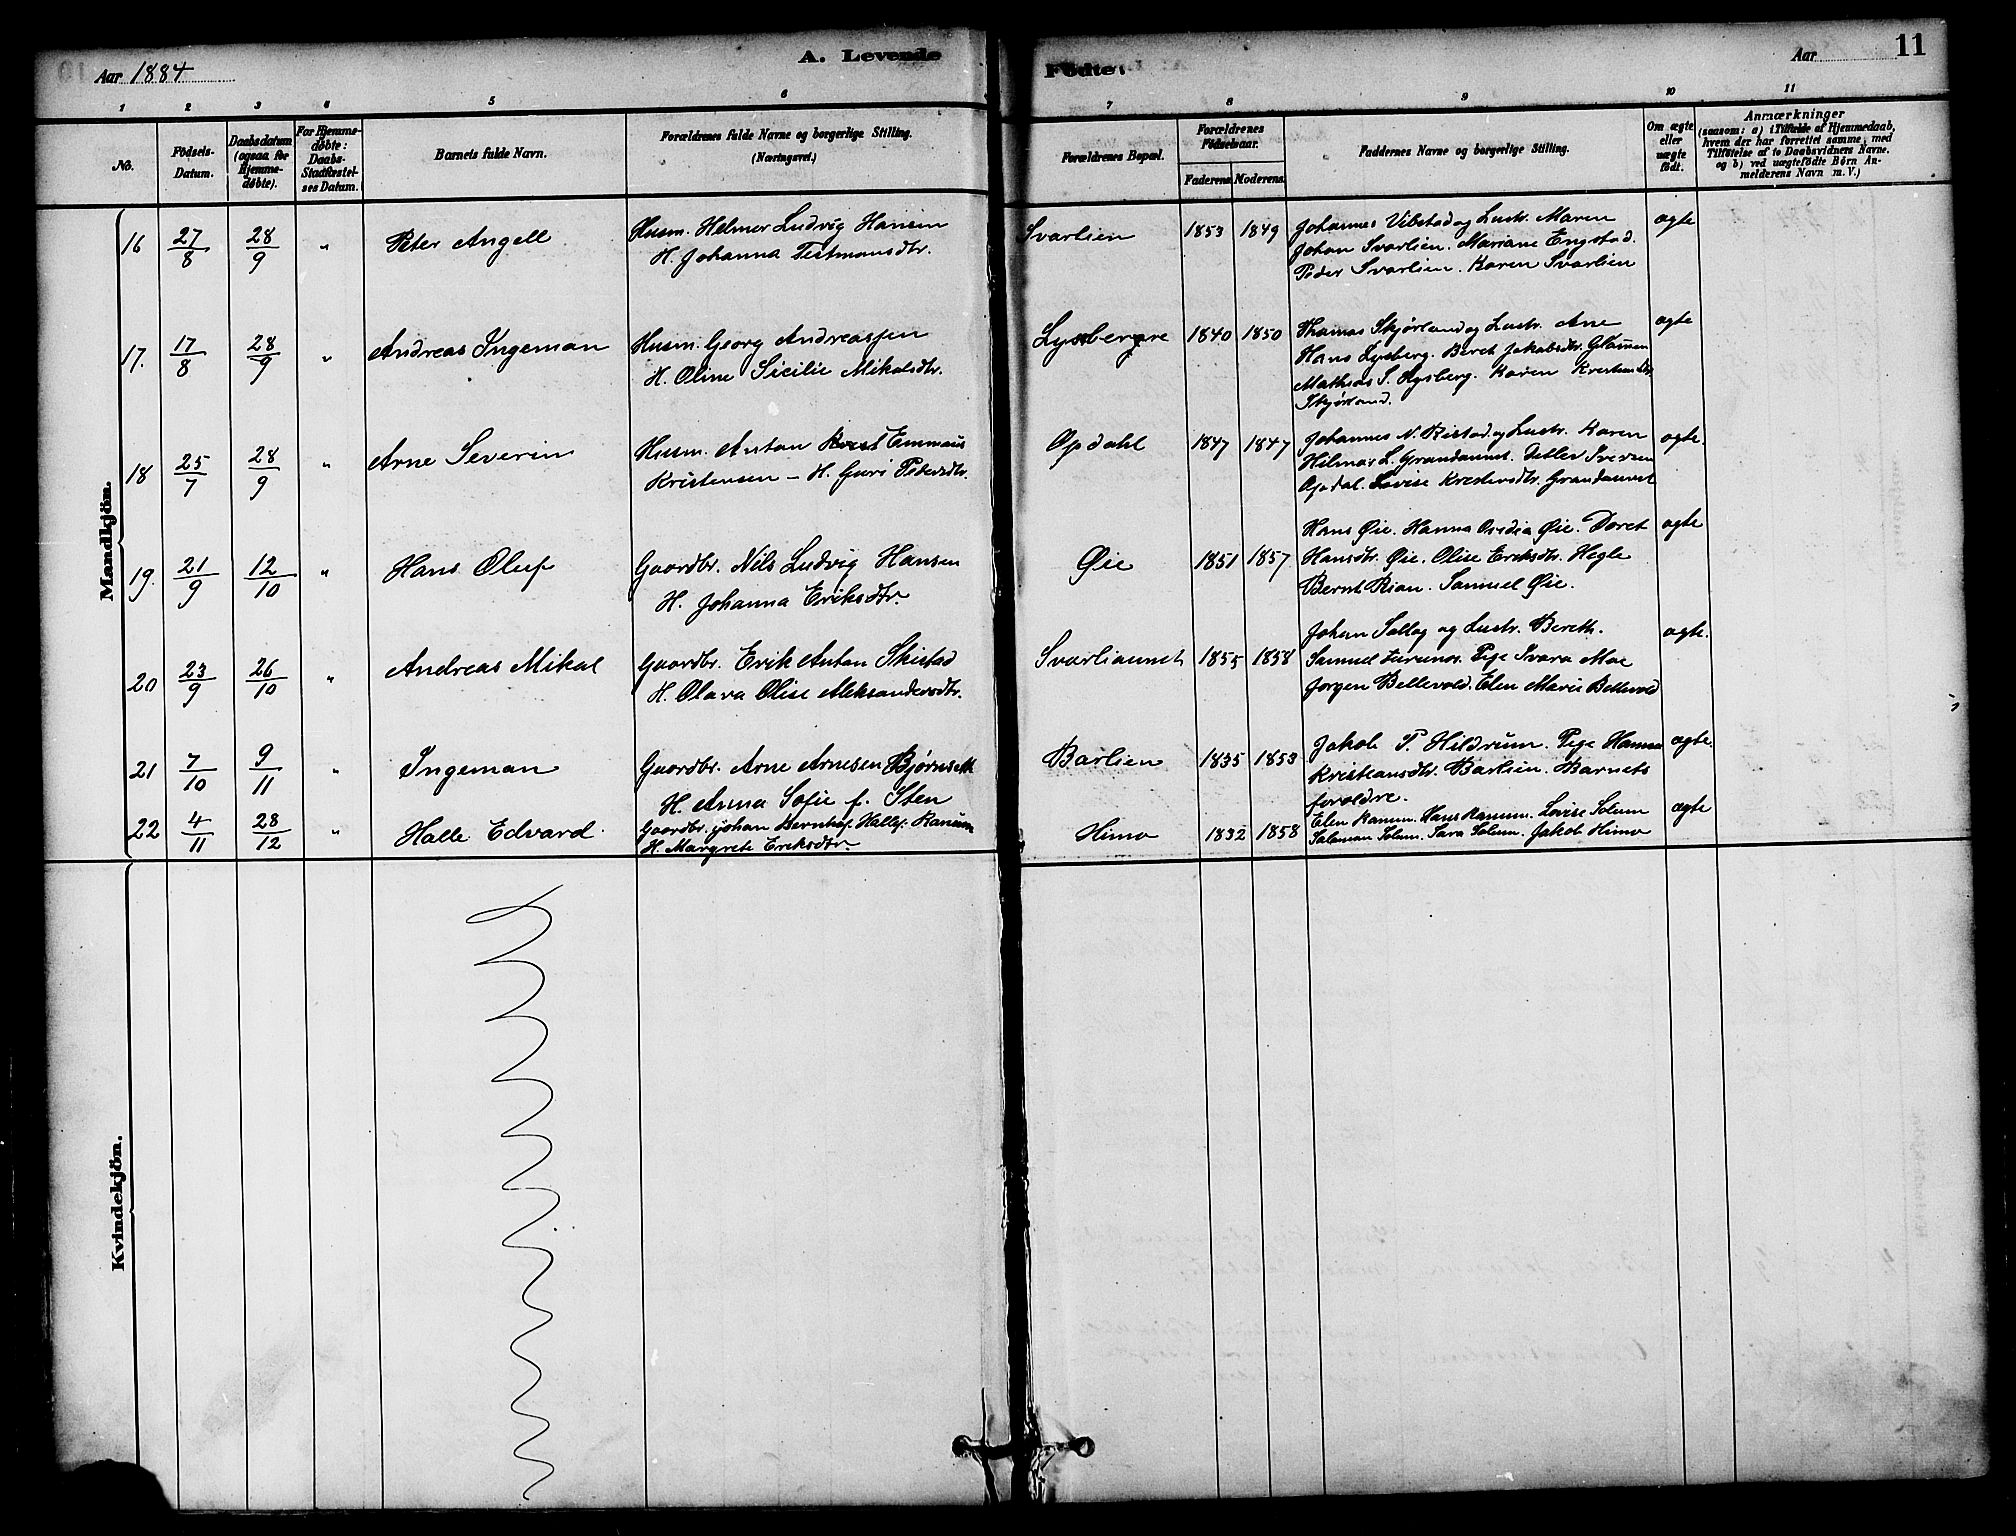 Aar 1884
A. Levende
Fødte.
Aar
11
1 2 3 4 5 6 7 8 9 10 11
No.
Fødsels-
Datum.
Daabsdatum
(ogsaa for
Hjemme-
døbte).
For Hjemme-
døbte:
Daabs-
Stadfæstel-
ses Datum.
Barnets fulde Navn.
Forældrenes fulde Navne og borgerlige Stilling.
(Næringsvei.)
Forældrenes Bopæl.
Forældrenes
Fødselsaar.
Faderens. Moderens.
Faddernes Navne og borgerlige Stilling.
Om ægte
eller
uægte
født.
Anmærkninger
(saasom: a) i Tilfælde af Hjemmedaab,
hvem der har forrettet samme, med
Tilføielse af to Daabsvidners Navne.
og b) ved uægtefødte Børn An-
melderens Navn m. V.)
Mandkjön.
16 27/8 28/9 " Peter Angell
Husm. Helmer Ludvig Hansen
H. Johanna Testmansdtr.
Svarlien 1853 1849
Johannes Vibstad og Hustr. Maren
Johan Svarlien. Mariane Engstad.
Peder Svarlien. Karen Svarlien
ægte
17. 17/8 28/9 " Andreas Ingeman
Husm. Georg Andreassen
H. Oline Sicilie Mikalsdtr.
1840 1850
Thomas Skjørland og Hustr. Ane
Hans Lysberg. Beret Jakobsdtr.
Mathias S. Lysberg. Karen
Skjørland.
ægte
18 25/7 28/9 " Arne Severin
Husm. Anton Emmaus
Kristensen – H. Guri Petersdtr.
Opdahl 1847 1847
Johannes N. Ristad og Hustr. Karen
Hilmar L. Grandaunet. Detlev Iversen
Opdal. Lovise Grandaunet
ægte.
19. 21/9 12/10 " Hans Oluf
Gaardbr. Nils Ludvig Hansen
H. Johanna Eriksdtr.
Øie 1851 1857
Hans Øie. Hanna Øie. Doret
Hansdtr. Øie. Olise Eriksdtr. Hegle
Bernt Rian. Samuel Øie.
ægte
20 23/9 26/10 " Andreas Mikal
Gaardbr. Erik Anton Skistad
H. Olava Olise Aleksandersdtr.
Svarliaunet 1855 1858
Johan og Hustr. Bereth.
Samuel Pige Moe
Jørgen Bellevold. Elen Marie Bellevold
ægte.
21 7/10 9/11 " Ingeman
Gaardbr. Arne Arnesen Bjørnseth
H. Anna Sofie f. Sten
Barlien 1835 1853
Jakob P. Hildrum. Pige Hanna
Kristiansdtr. Barlien. Barnets
forældre.
ægte.
22 4/11 28/12 " Halle Edvard.
Gaardbr. Johan Bernhof Hallsf. Ranum
H. Margrete Eriksdtr.
Himo 1832 1858
Elen Ranum. Hans Ranum. Lovise Solum
Salamon Solum. Sara Solum. Jakob Himo
ægte
Kvindekjön.